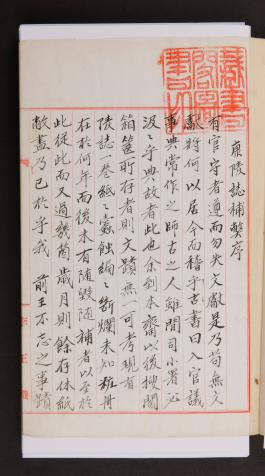 康陵誌補弊序
有官守者遵而勿失文獻是乃苟無文
獻將何以居今而稽乎古書曰入官議
事典常作之師古之人雖閒司小署必
汲汲乎典故者此也余到本齋以後搜閱
箱篋所存者則文蹟無一可考現有
陵誌一卷紙之蠹蝕編之斷爛未知粧
在於何年而後未有隨毀隨補者以至於
此從此而又過幾箇歲月則餘存休紙
敝盡乃已於乎我 前王不忘之事蹟
李王職